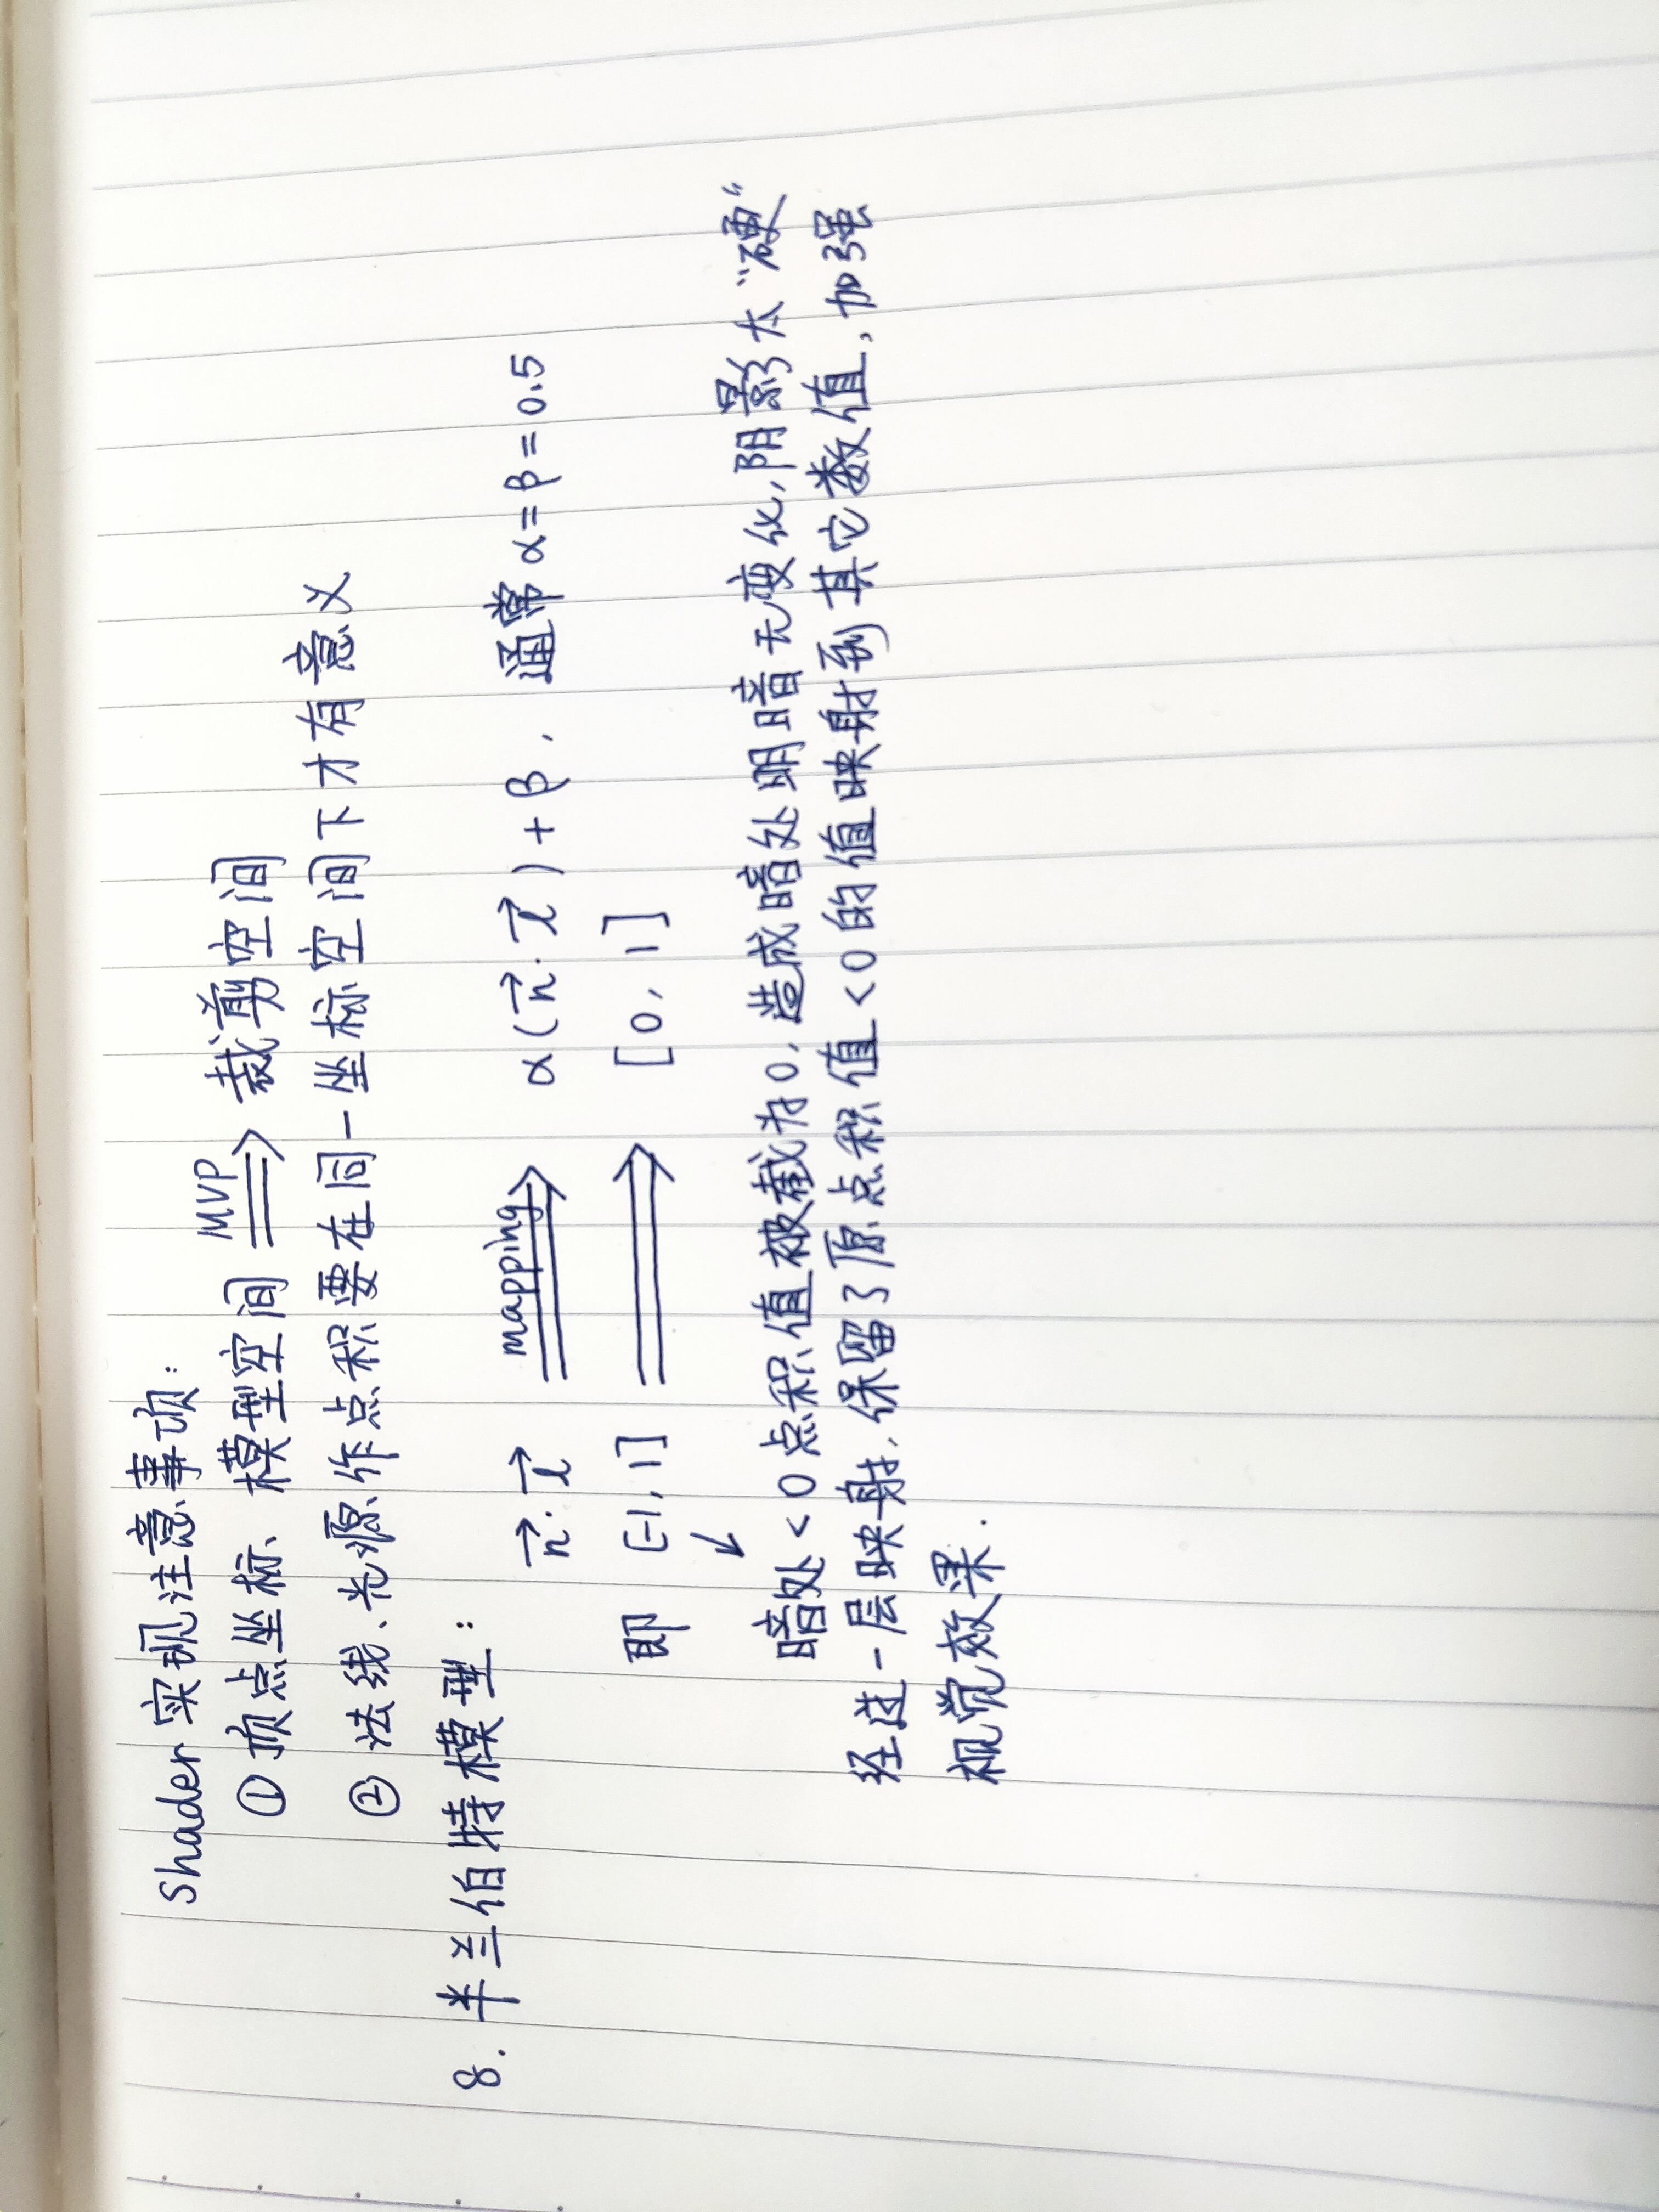 Shader 实现注意事项:
① 顶点坐标、模型空间 ⟹ 裁剪空间
MVP
② 法线、光源作点积要在同一坐标空间下才有意义
8. 半兰伯特模型:
n⃗·l⃗ mapping⟹ α(n⃗·l⃗)+β, 通常α=β=0.5
即 [-1, 1] ⟹ [0, 1]
↙
暗处<0点积值被截为0,造成暗处明暗无变化,阴影太“硬”
经过一层映射,保留了原点积值<0的值映射到其它数值,加强
视觉效果.